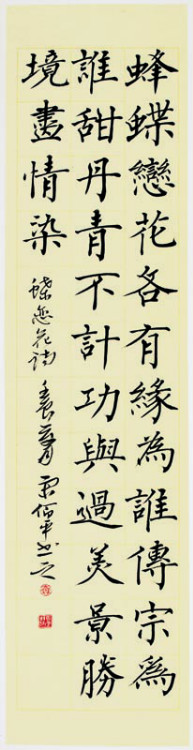 蜂蝶戀花各有緣為誰傳宗為
誰甜丹青不計功與過美景勝
境盡情染
蝶恋花詩